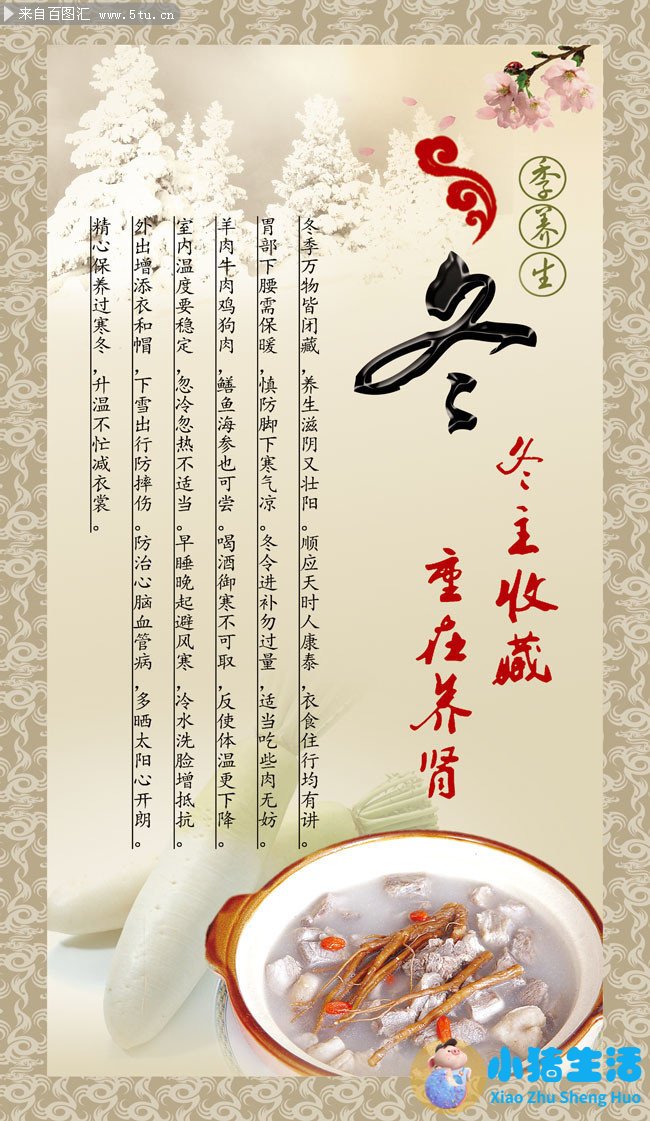 来自百图汇 www.5tu.cn
季养生
冬
冬主收藏
重在养肾
冬季万物皆闭藏,养生滋阴又壮阳。顺应天时人康泰,衣食住行均有讲。
胃部下腰需保暖,慎防脚下寒气凉。冬令进补勿过量,适当吃些肉无妨。
羊肉牛肉鸡狗肉,鳝鱼海参也可尝。喝酒御寒不可取,反使体温更下降。
室内温度要稳定,忽冷忽热不适当。早睡晚起避风寒,冷水洗脸增抵抗。
外出增添衣和帽,下雪出行防摔伤。防治心脑血管病,多晒太阳心开朗。
精心保养过寒冬,升温不忙减衣裳。
小猪生活
Xiao Zhu Sheng Huo